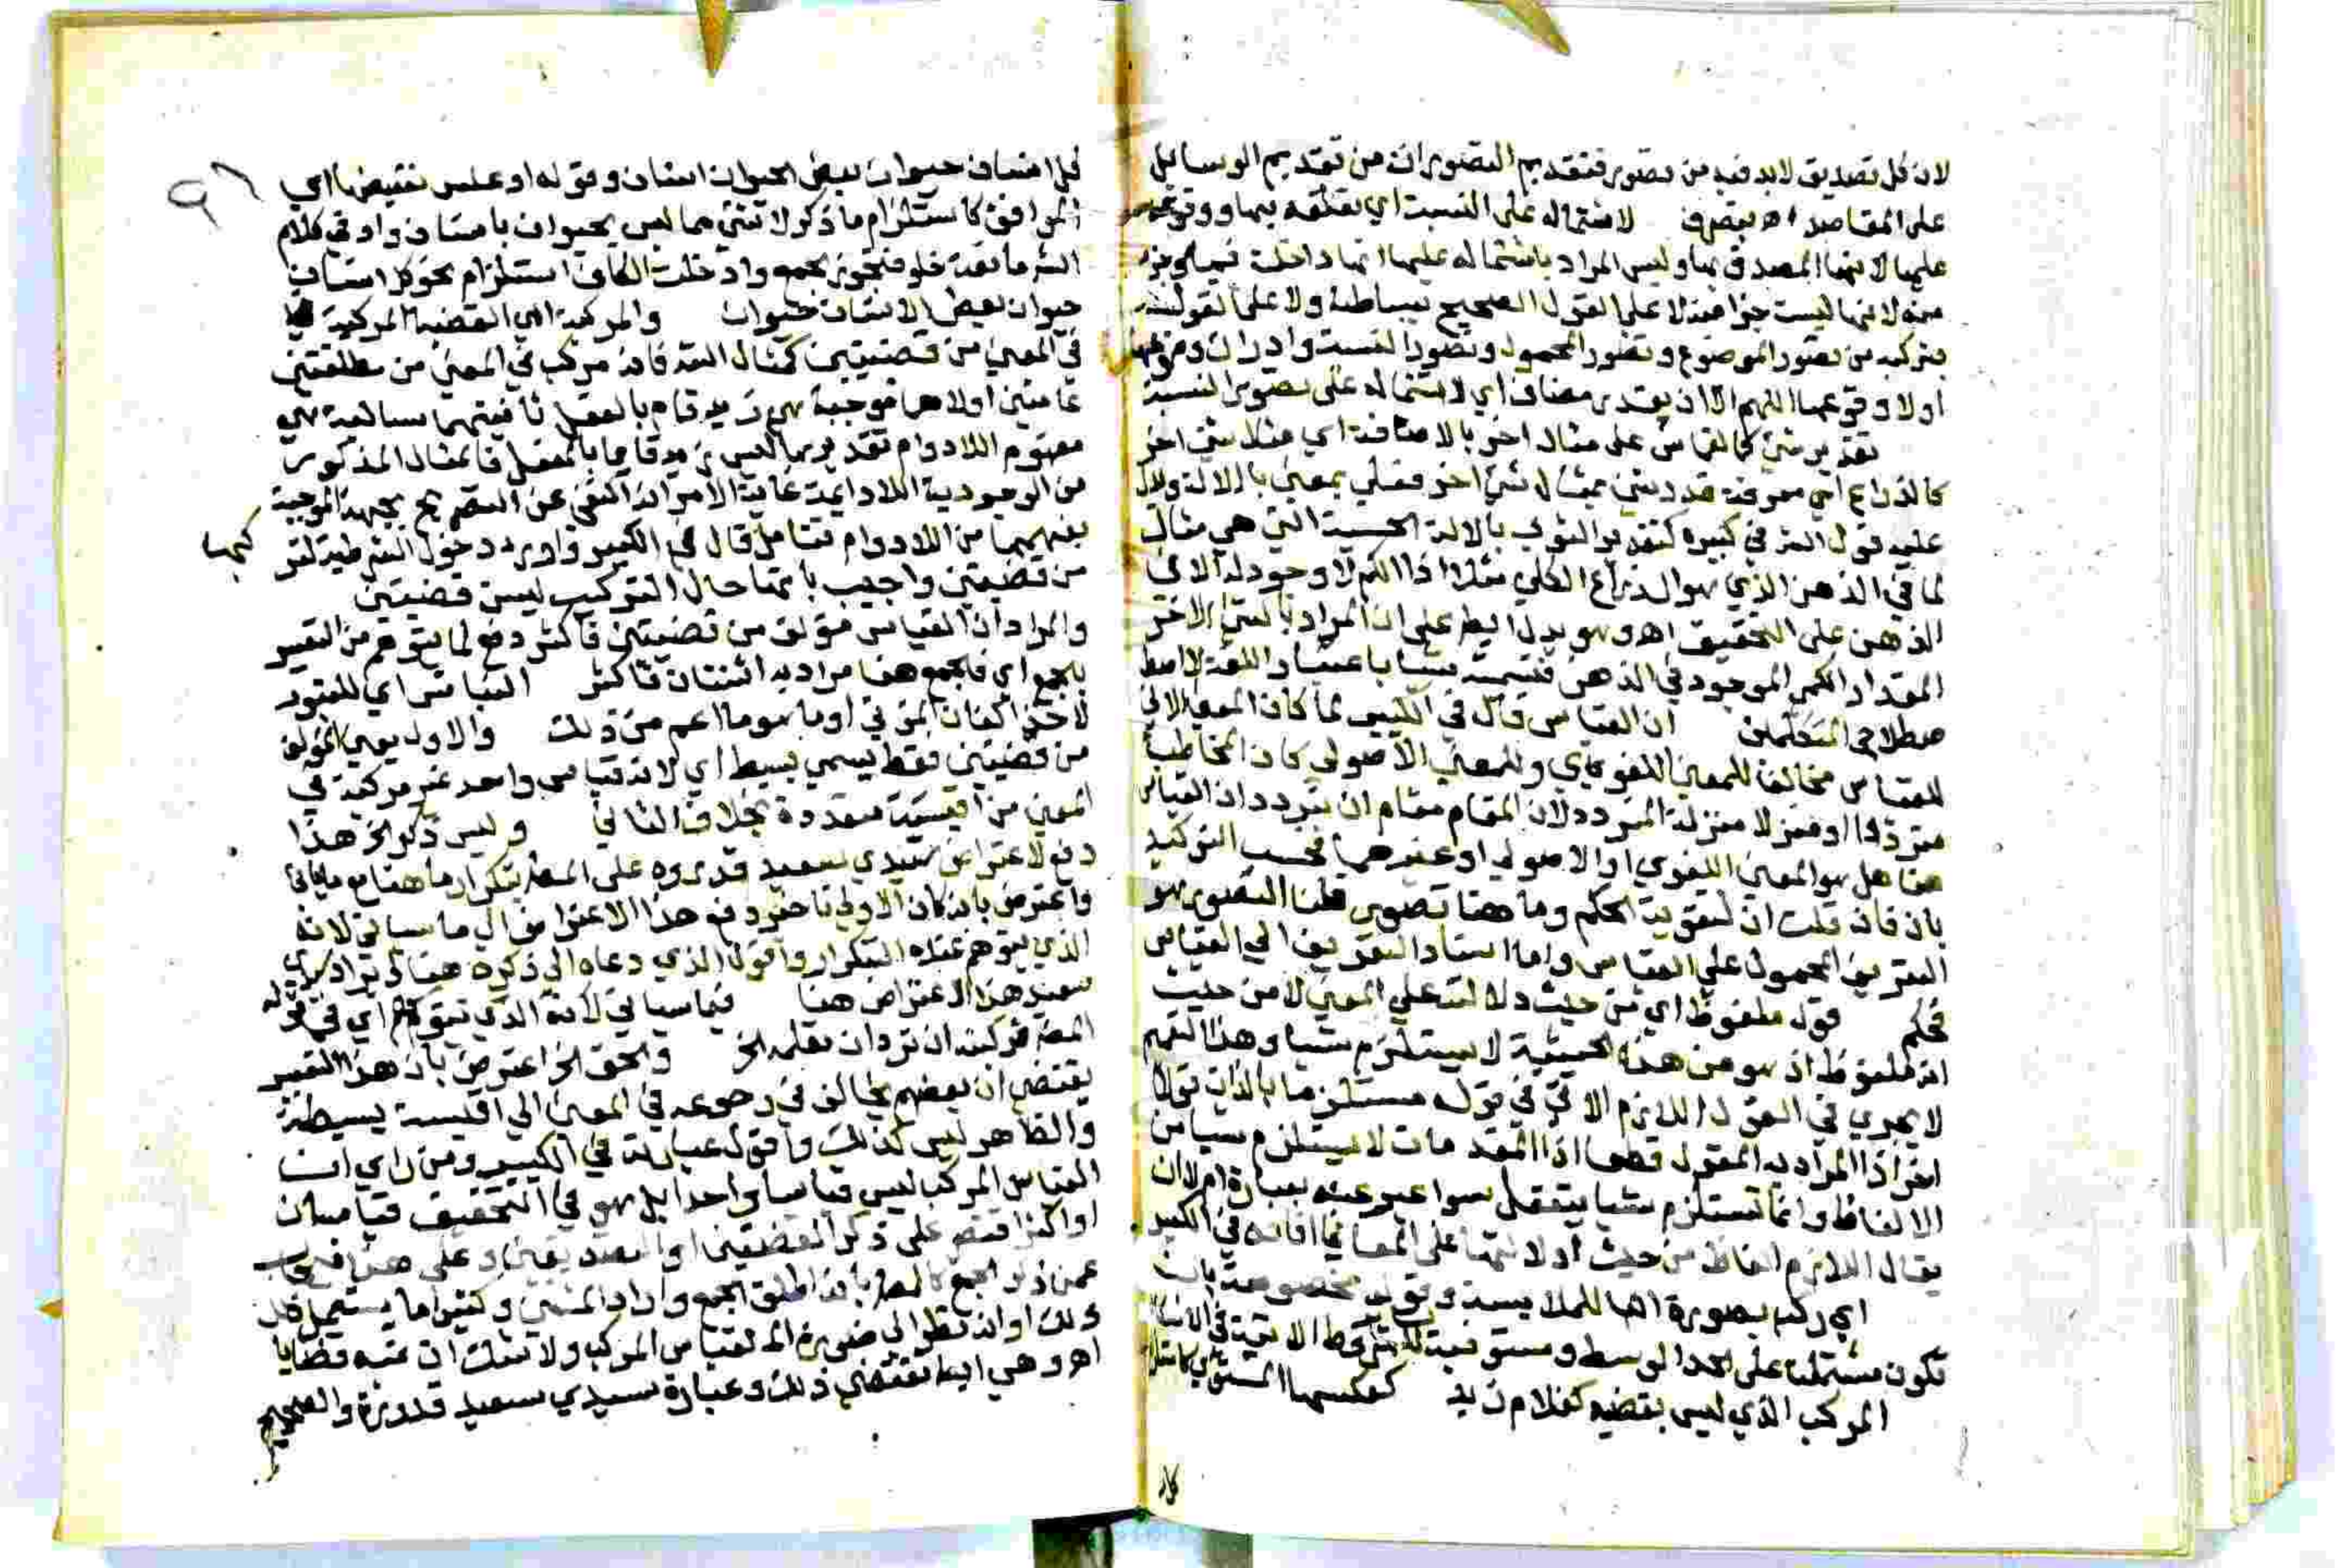 لان كل تصديق لابد فيه من تصور فتقديم التصورات من تقديم الوسائل
على المقاصد اه بتصرف لاشتماله على النسبة اي تعلقه بها ووقوعه
عليها لانها المصدق بها وليس المراد باشتماله عليها انها داخلة فيه
منه لانها ليست جزا منه لا على القول الصحيح ببساطته ولا على القول
بتركبه من تصور الموضوع وتصور المحمول وتصور النسبة وادراك وقوعها
اولا وقوعها اللهم الا ان يقدر مضاف اي لاشتماله على تصور النسبة
تقدير شئ كالقياس على مثال اخر بالاضافة اي مثلا شئ اخر
كالذراع اي معرفة قدر شئ بمثال شئ اخر فعلى بمعنى باء الالة
عليه قول المص في كبيره كتقدير الثوب بالالة الحسية التي هي مثال
لما في الذهن الذي هو الذراع الكلي مثلا اذ الكم لا وجود له الا في
الذهن على التحقيق اه وهو يدل ايضا على ان المراد بالشئ الاخر
المقدار الكمي الموجود في الذهن فتسميته شيا باعتبار اللغة لا اصطلاح
المتكلمين ان القياس قال في الكبير لما كان المعنى الاتي
للقياس مخالفا للمعنى اللغوي وللمعنى الاصولي كان المخاطب
مترددا او منزلا منزلة المتردد لان المقام مقام ان يتردد ان القياس
هنا هل هو المعنى اللغوي او الاصولي او غيرهما فحسن التوكيد
بان فان قلت ان لتقوية الحكم وما هنا تصور قلنا التصور هو
التعريف المحمول على القياس واما اسناد التعريف الى القياس
فحكم قول ملفوظ اي من حيث دلالته على المعنى لا من حيث
انه ملفوظ اذ هو من هذه الحيثية لا يستلزم شيا وهذا التعميم
لا يجري في القول اللازم الاتي في قوله مستلزما بالذات قولا
اخر اذ المراد به المعقول قطعا اذ المقدمات لا يستلزم شيا من
الالفاظ وانما تستلزم شيا يتعقل سوا عبر عنه بعبارة ام لا
يقال اللازم الفاظ من حيث دلالتها على المعاني افاده في الكبير
اي ركب بصورة البا للملابسة وقوله مخصوصة بان
تكون مشتملة على الحد الوسط ومستوفية للشروط الاتية في الانتاج
المركب الذي ليس بقضية كغلام زيد كعكسها المستوي
كل
٩٦
كل انسان حيوان بعض الحيوان انسان وقوله او عكس نقيضها اي
الموافق كاستلزام ما ذكر لا شئ مما ليس بحيوان بانسان واو في كلام
الش مانعة خلو فتجوز الجمع وادخلت الكاف استلزام نحو كل انسان
حيوان لبعض الانسان حيوان والمركبة اي القضية المركبة
في المعنى من قضيتين كمثال المص فانه مركب في المعنى من مطلقتين
عامتين اولاهما موجبة هي زيد قام بالفعل ثانيتهما سالبة هي
مفهوم اللادوام تقديرها ليس زيد قايما بالفعل فالمثال المذكور
من الوجودية اللادايمة غاية الامر انه اكتفى عن التصريح بجهة الموجبة
بفهمها من اللادوام فتامل قال في الكبير واورد دخول الشرطية
كبها
من قضيتين واجيب بانها حال التركيب ليست قضيتين
والمراد ان القياس مؤلف من قضيتين فاكثر دفع لما يتوهم من التعبير
بالجمع اي فالجمع هنا مراد به اثنتان فاكثر القياس اي للمقصود
لاخذ اكفان الموتى او ما هو ما اعم من ذلك والاول يعني المؤلف
من قضيتين فقط يسمى بسيطا اي لانه قياس واحد غير مركبة في
المعنى من اقيسة متعددة بخلاف الثاني وليس ذكر الخ هذا
دفع لاعتراض سيدي سعيد قدوره على المص بتكرار ما هنا مع ما ياتي
واعترض بانه كان الاولى تاخير دفع هذا الاعتراض الى ما سياتي لانه
الذي يتوهم عنده التكرار واقول الذي دعاه الى ذكره هنا ايراد سيدي
سعيد هذا الاعتراض هنا فيما سياتي لانه الذي اي في قوله
المص فركبنه ان ترد ان تعلمه الخ والحق الخ اعترض بان هذا التعبير
يقتضي ان بعضهم يخالف في رجوعه في المعنى الى اقيسة بسيطة
والظاهر ليس كذلك واقول عبارته في الكبير ومن راى ان
القياس المركب ليس قياسا واحدا بل هو في التحقيق قياسان
او اكثر اقتصر على ذكر القضيتين او التصديقين وعلى هذا فيجاب
عمن ذكر الجمع كالمص بانه اطلق الجمع واراد المثنى وكثيرا ما يستعمل
ذلك او انه نظر الى صورة القياس المركب ولا شك ان فيه قضايا
اه وهي ايضا تقتضي ذلك وعبارة سيدي سعيد قدورة والصحيح